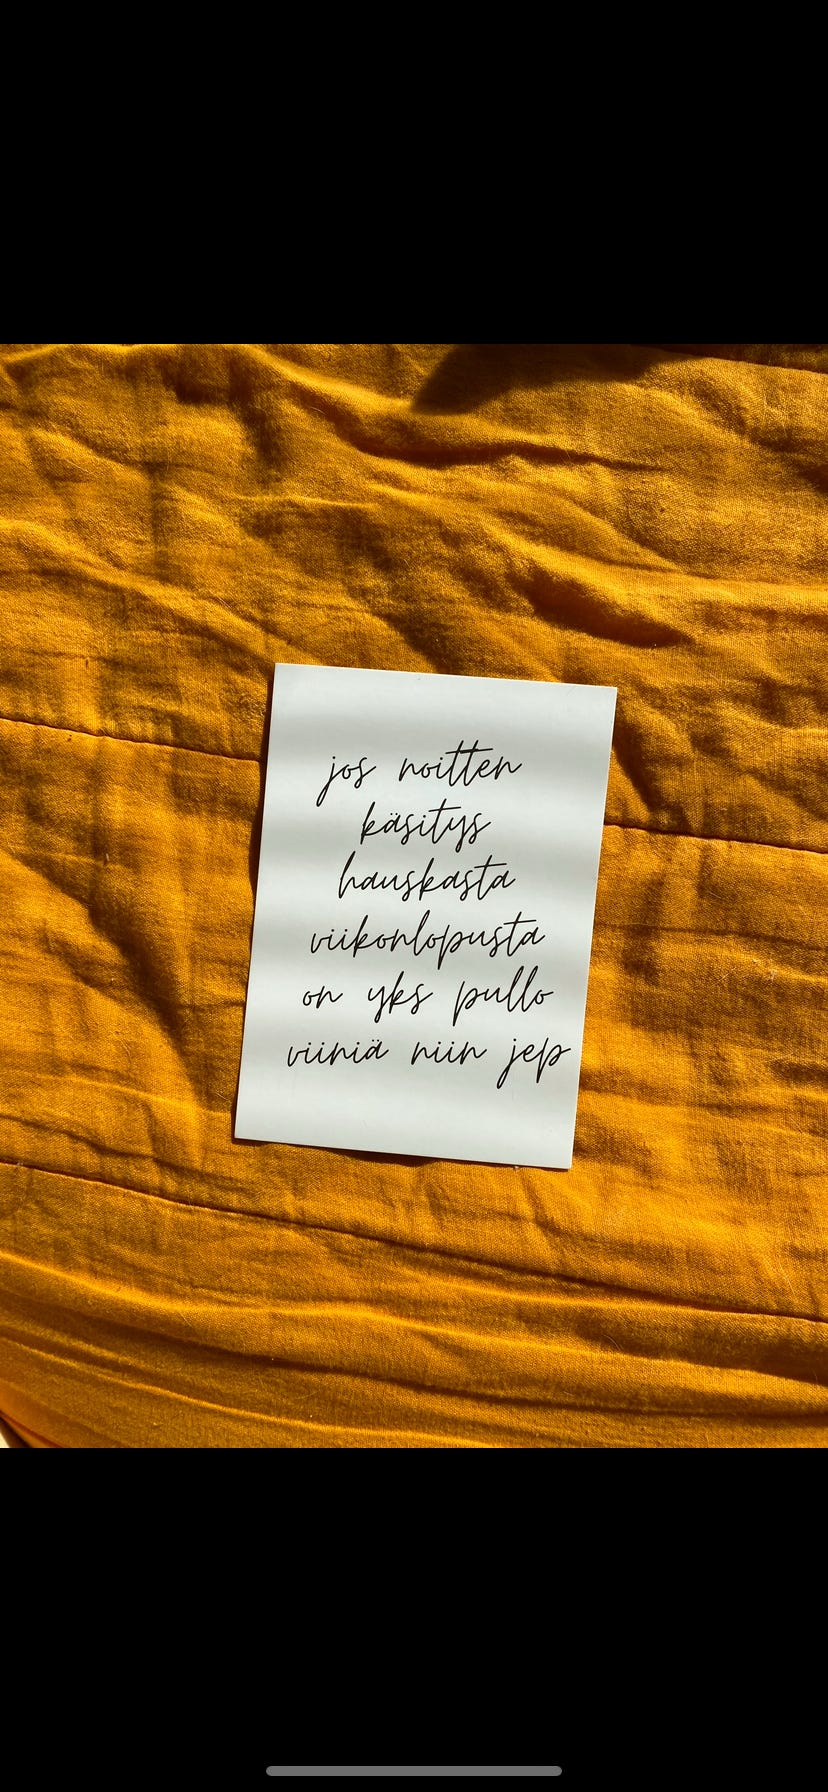 jos noitten
käsitys
hauskasta
viikonlopusta
on yks pullo
viiniä niin jep